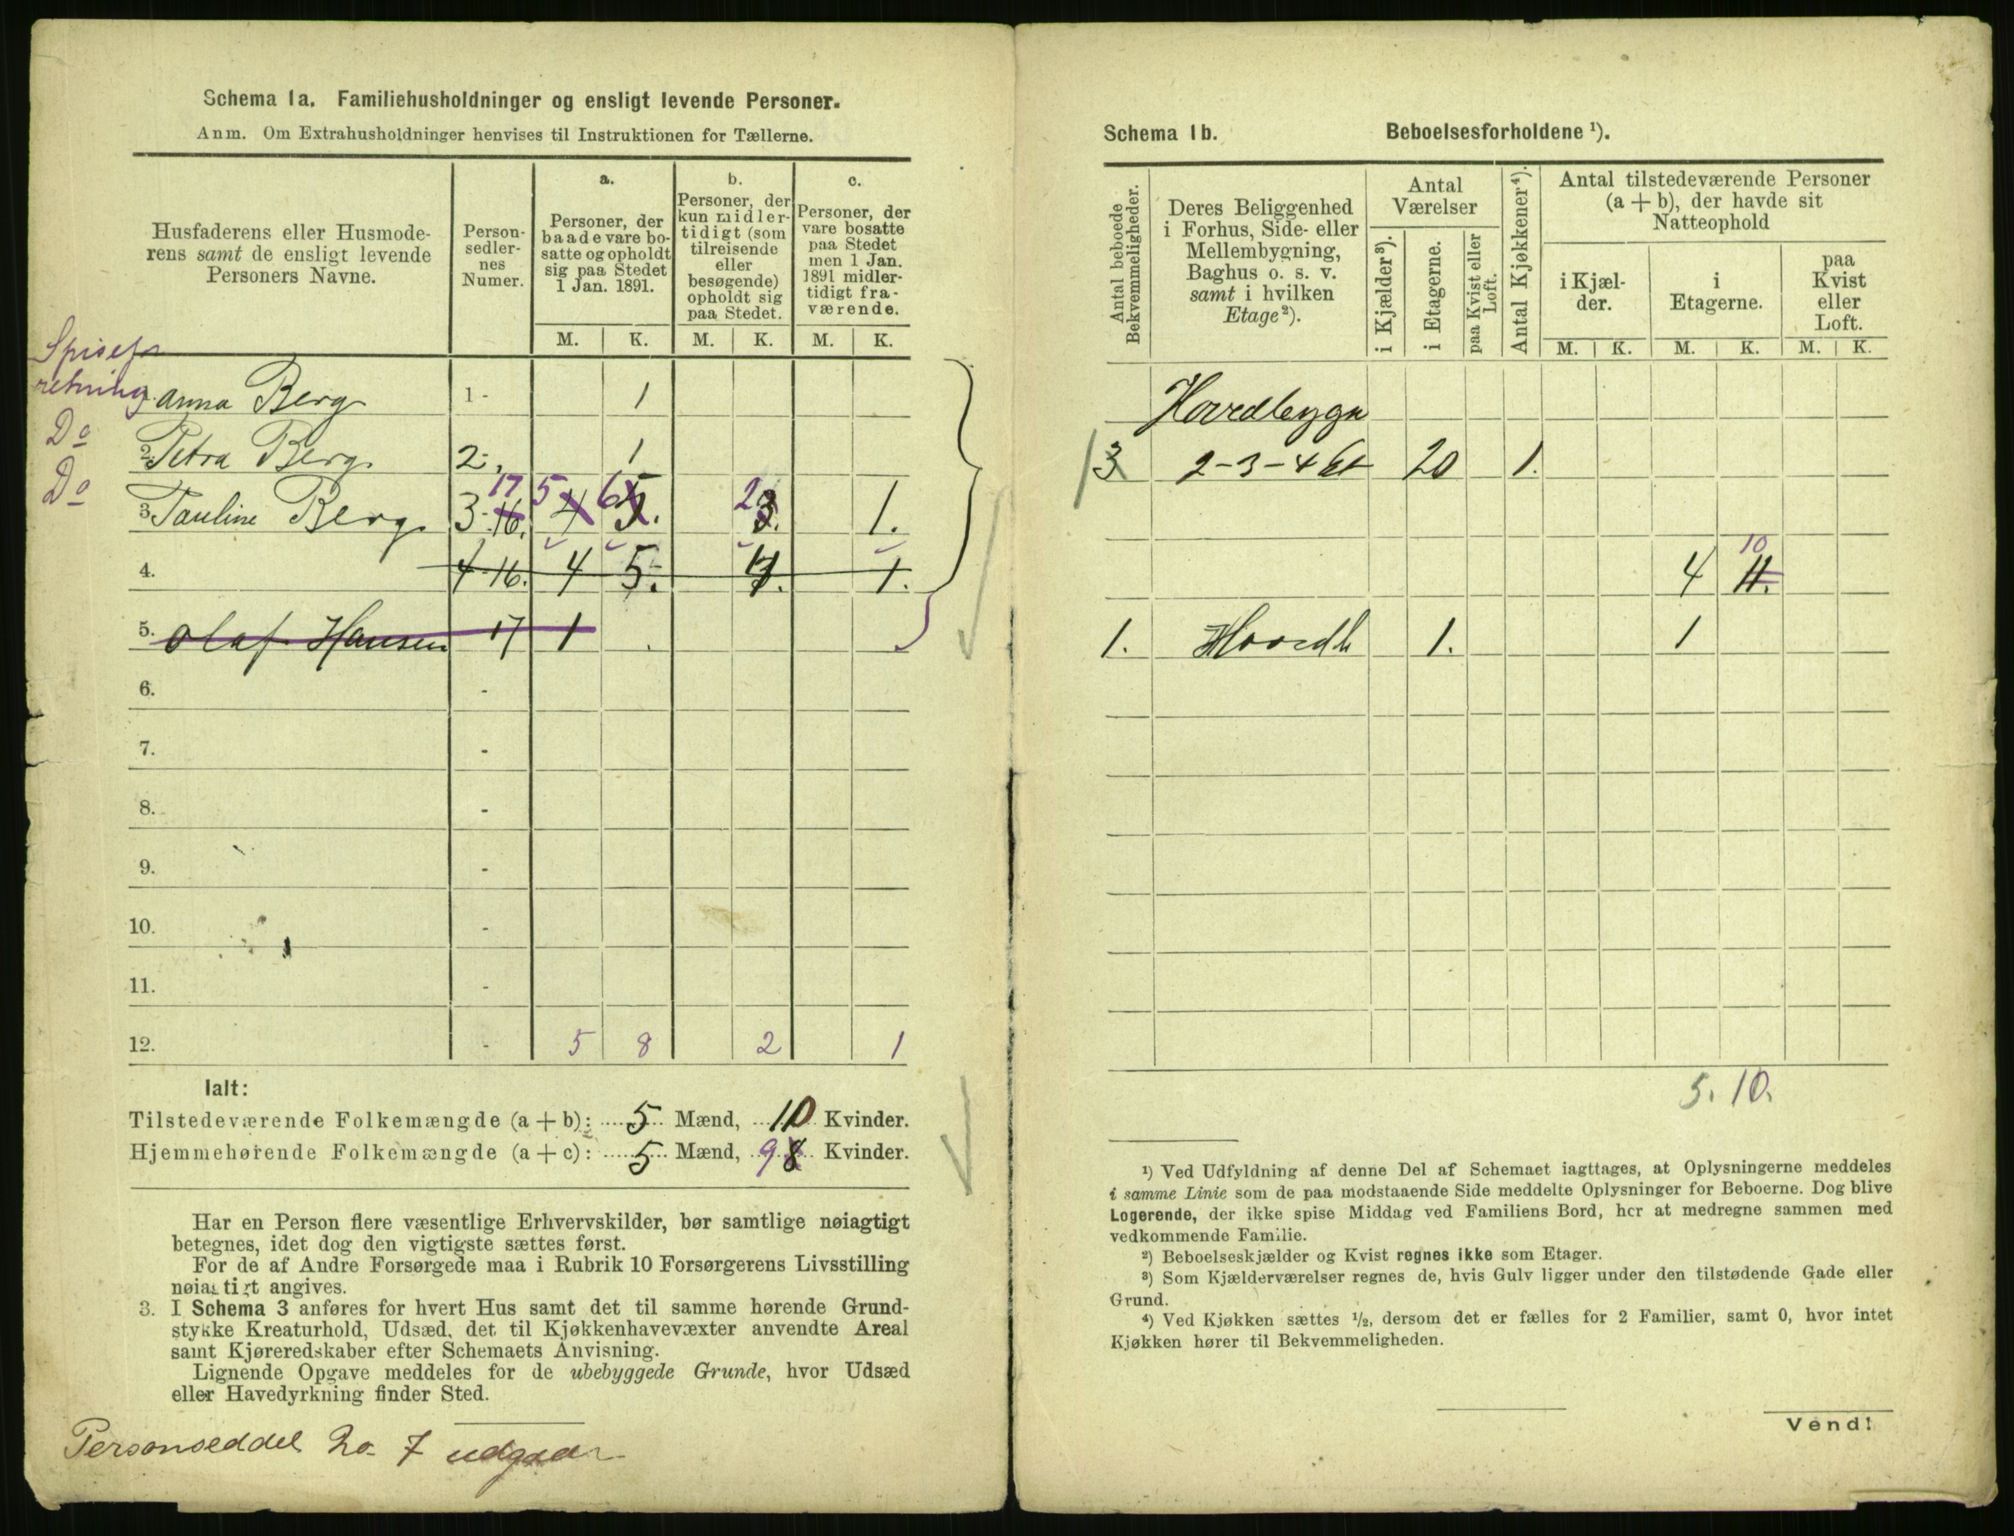 Schema 1a. Familiehusholdninger og ensligt levende Personer.
Anm. Om Extrahusholdninger henvises til Instruktionen for Tællerne.
Husfaderens eller Husmode-
rens samt de ensligt levende
Personers Navne.
Person-
sedler-
nes
Numer.
a.
Personer, der
baade vare bo-
satte og opholdt
sig paa Stedet
1 Jan. 1891.
b.
Personer, der
kun midler-
tidigt (som
tilreisende
eller
besøgende)
opholdt sig
paa Stedet.
c.
Personer, der
vare bosatte
paa Stedet
men 1 Jan.
1891 midler-
tidigt fra-
værende.
M. K. M. K. M. K.
Spisef
retning
1. Anna Berg 1 - 1
Do 2. Petra Berg. 2-. 1
17 5 6 2
Do 3. Pauline Berg. 3-16. 4 5. 3. 1.
4. 4-16. 4 5. 4. 1.
5. Olaf Hansen 17 1
6. -
7. -
8. -
9. -
10. -
11. -
12. - 5 8 2 1
Ialt:
Tilstedeværende Folkemængde (a + b): 5 Mænd, 10 Kvinder.
Hjemmehørende Folkemængde (a + c): 5 Mænd, 9 8 Kvinder.
Har en Person flere væsentlige Erhvervskilder, bør samtlige nøiagtigt
betegnes, idet dog den vigtigste sættes først.
For de af Andre Forsørgede maa i Rubrik 10 Forsørgerens Livsstilling
nøiagtigt angives.
3. I Schema 3 anføres for hvert Hus samt det til samme hørende Grund-
stykke Kreaturhold, Udsæd, det til Kjøkkenhavevæxter anvendte Areal
samt Kjøreredskaber efter Schemaets Anvisning.
Lignende Opgave meddeles for de ubebyggede Grunde, hvor Udsæd
eller Havedyrkning finder Sted.
Personseddel No. 7 udgaar
Schema 1b. Beboelsesforholdene ¹).
Antal beboede
Bekvemmeligheder.
Deres Beliggenhed
i Forhus, Side- eller
Mellembygning,
Baghus o. s. v.
samt i hvilken
Etage²).
Antal
Værelser
i Kjælder³).
i Etagerne.
paa Kvist eller
Loft.
Antal Kjøkkener⁴).
Antal tilstedeværende Personer
(a + b), der havde sit
Natteophold
i Kjæl-
der.
i
Etagerne.
paa
Kvist
eller
Loft.
M. K. M. K. M. K.
Hovedbygn
1 3 2-3-4 Et 20 1.
10
4 11.
1. Hovedb 1. 1
5. 10.
¹) Ved Udfyldning af denne Del af Schemaet iagttages, at Oplysningerne meddeles
i samme Linie som de paa modstaaende Side meddelte Oplysninger for Beboerne. Dog blive
Logerende, der ikke spise Middag ved Familiens Bord, her at medregne sammen med
vedkommende Familie.
²) Beboelseskjælder og Kvist regnes ikke som Etager.
³) Som Kjælderværelser regnes de, hvis Gulv ligger under den tilstødende Gade eller
Grund.
⁴) Ved Kjøkken sættes ½, dersom det er fælles for 2 Familier, samt 0, hvor intet
Kjøkken hører til Bekvemmeligheden.
Vend!